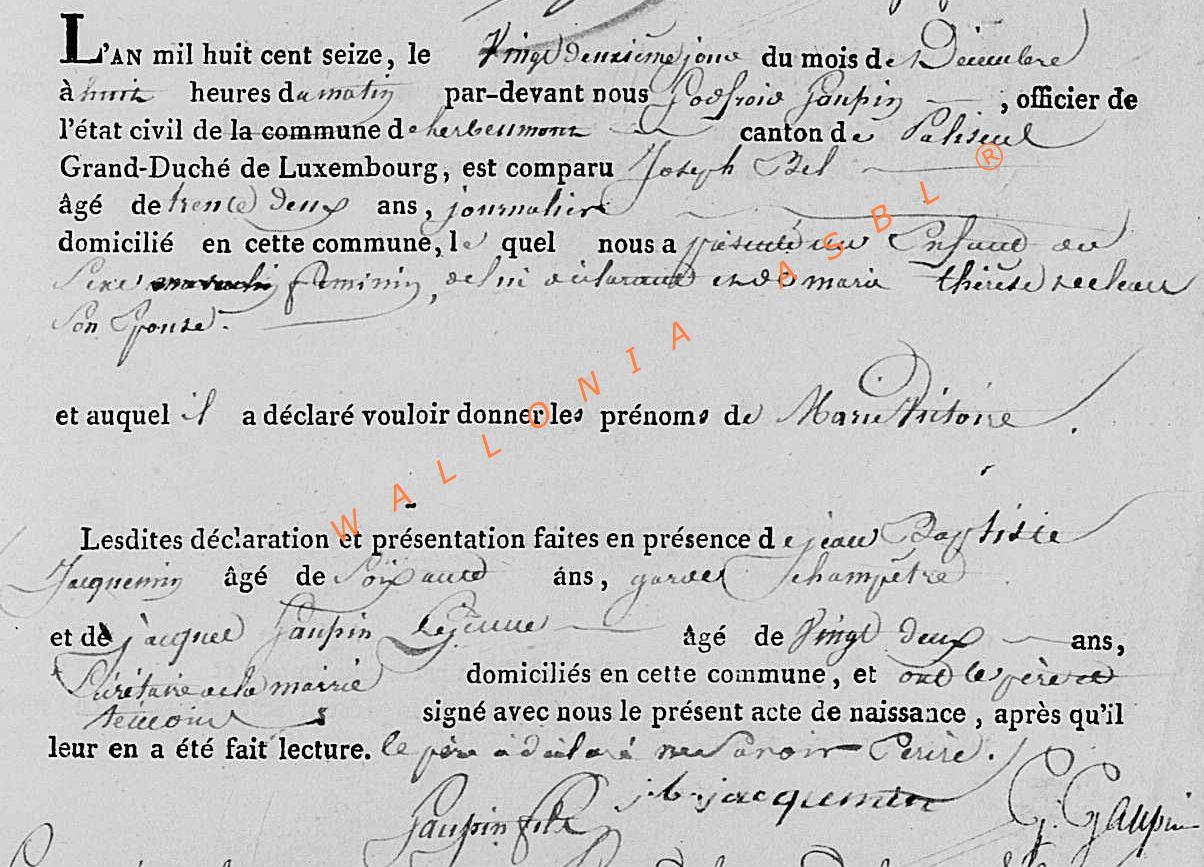 L'AN mil huit cent seize, le Vingt deuxième jour du mois de Décembre
à huit heures du matin par-devant nous Godfroid Gaupin, officier de
l'état civil de la commune de herbeumont canton de Paliseul
Grand-Duché de Luxembourg, est comparu Joseph Bel
âgé de trente deux ans, journalier
domicilié en cette commune, le quel nous a présenté un Enfant du
Sexe feminin, de lui déclarant et de marie thérèse
Son Epouse.
et auquel il a déclaré vouloir donner les prénoms de Marie Victoire.
Lesdites déclaration et présentation faites en présence de jean Baptiste
Jacquemin âgé de Soixante ans, garde Champêtre
et de jacque Gaupin Lejeune âgé de Vingt deux ans,
Sécrétaire de la mairie domiciliés en cette commune, et ont les père et
temoins signé avec nous le présent acte de naissance, après qu'il
leur en a été fait lecture. le père a déclaré ne Savoir Ecrire.
j.b. jacquemin
Gaupin fils G. Gaupin
WALLONIA ASBL ®